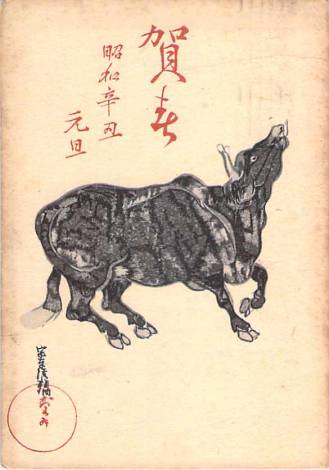 賀春
昭和辛丑
元旦